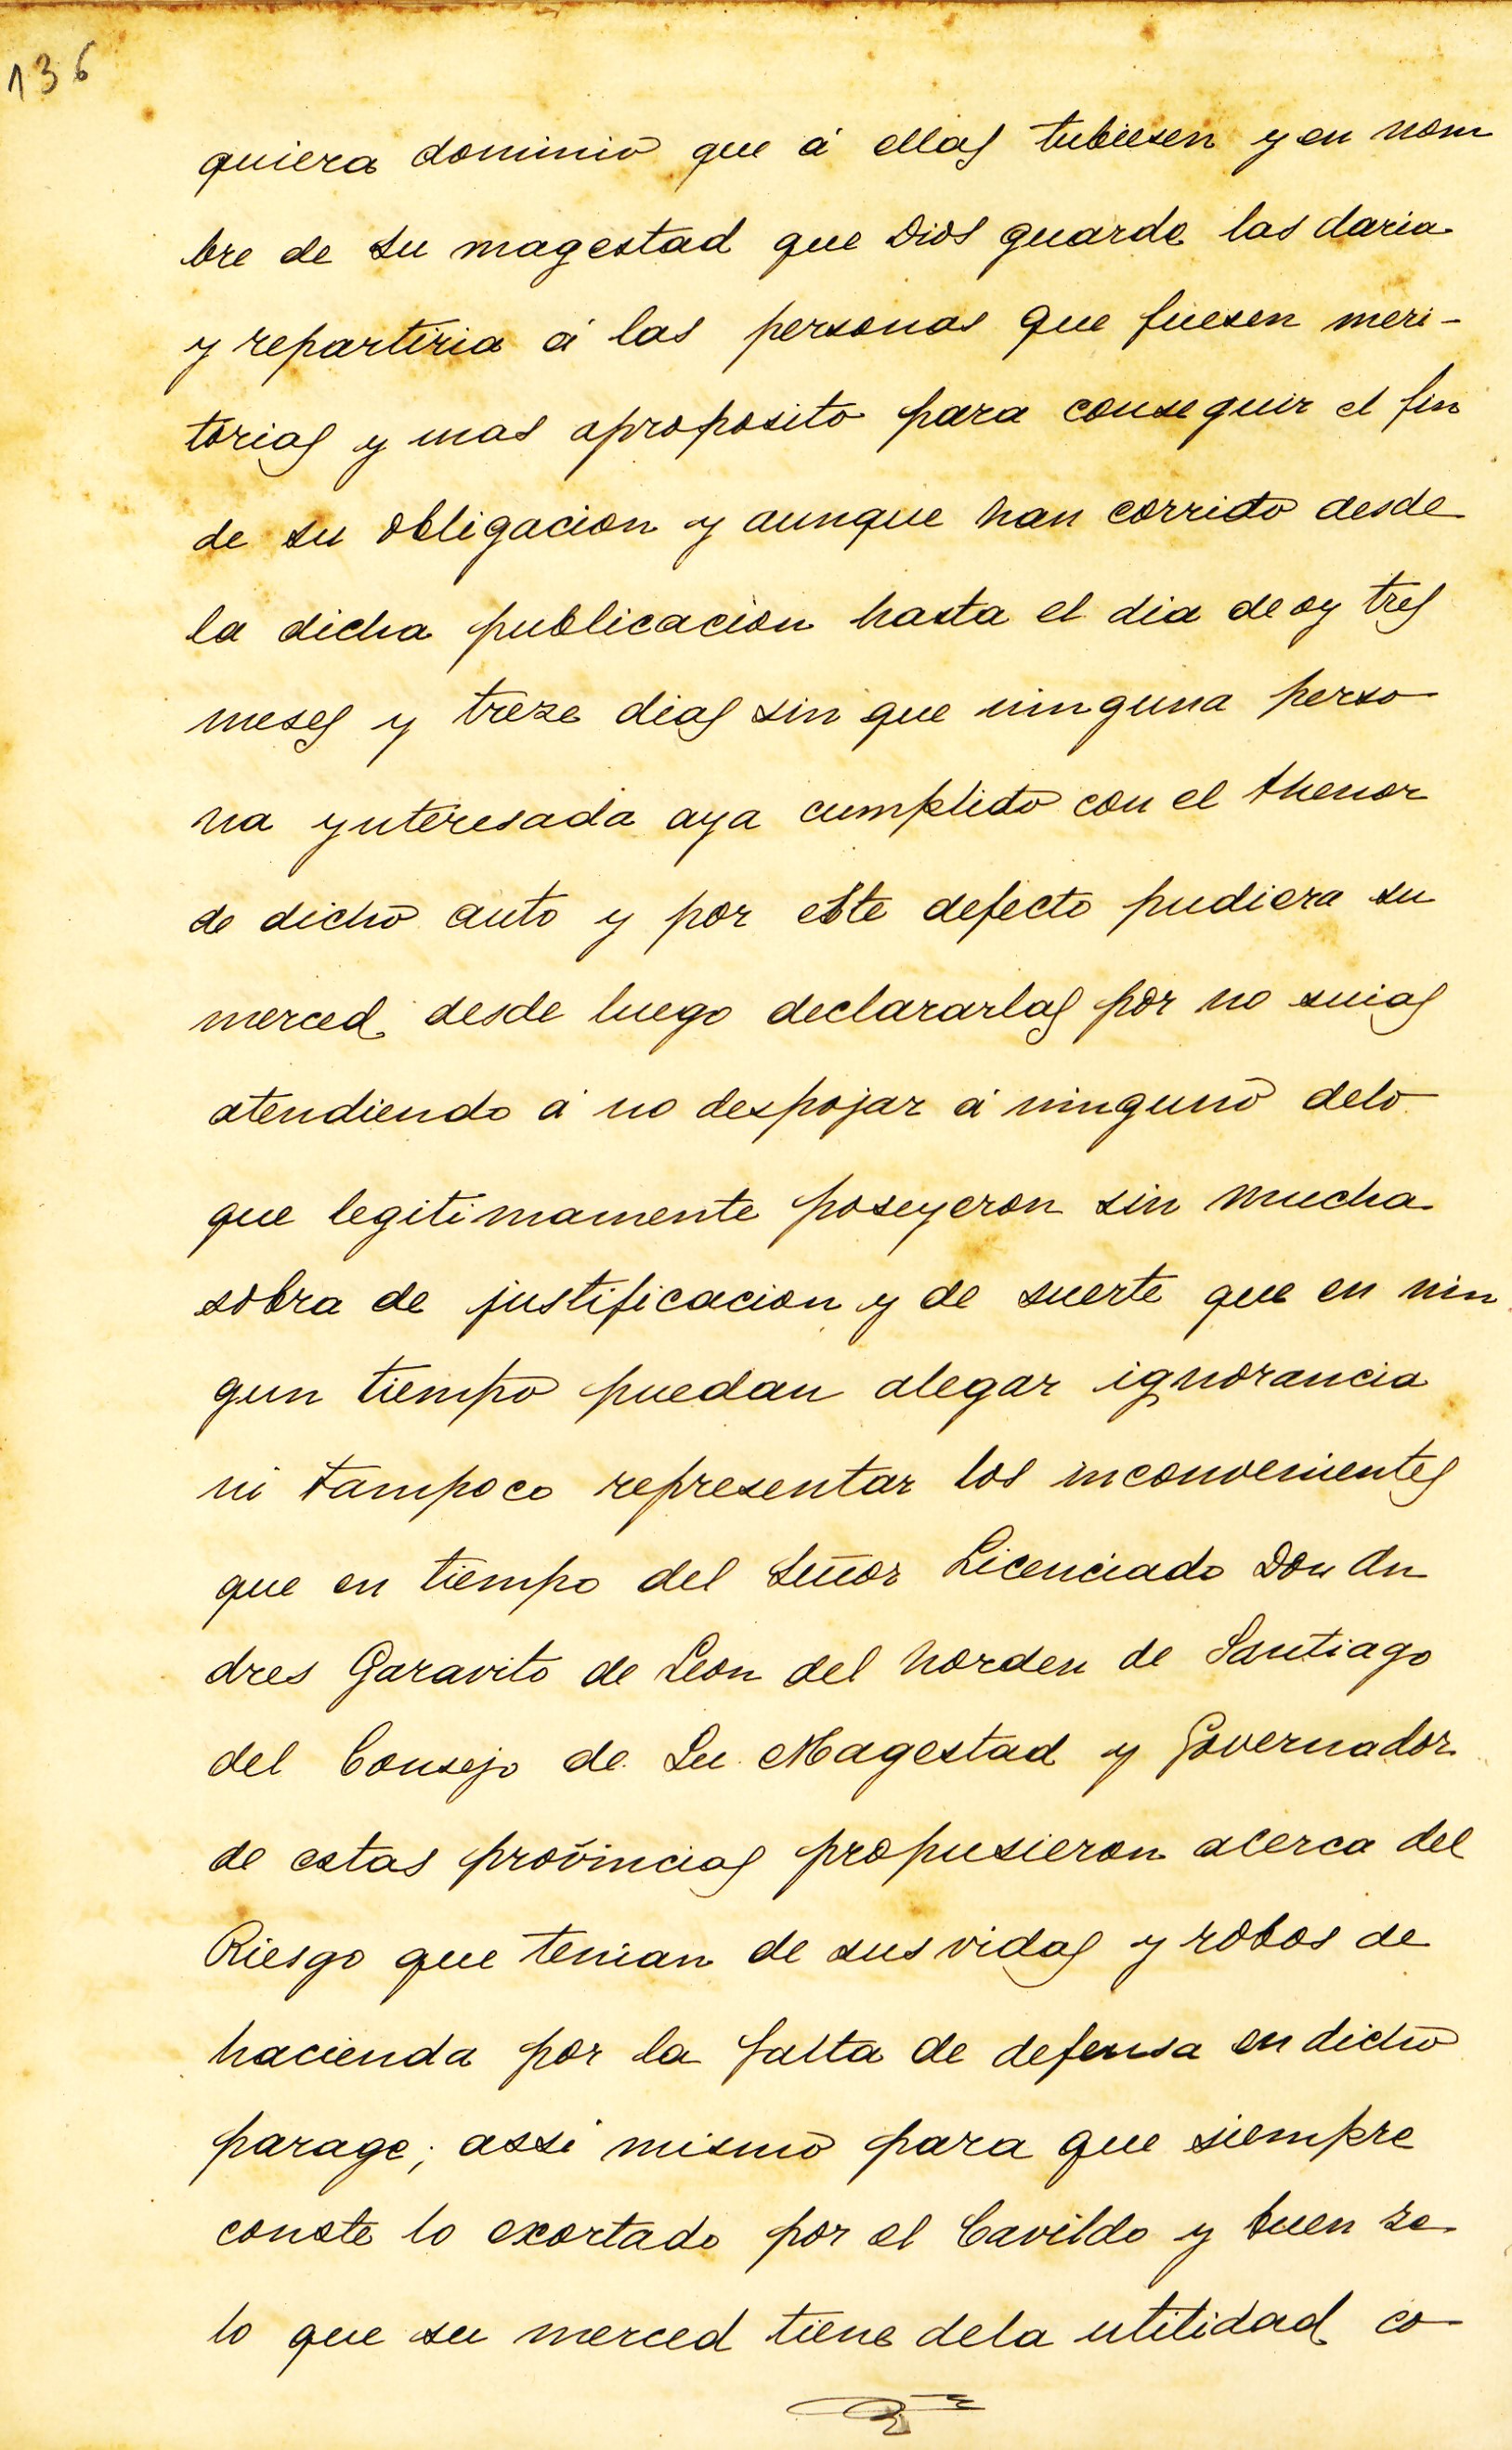 136
quiera dominio que á ellas tubiesen y en nom
bre de su magestad que Dios guarde las daria
y repartiria á las personas que fuesen meri-
torias y mas aproposito para conseguir el fin
de su obligacion y aunque han corrido desde
la dicha publicacion hasta el dia de oy tres
meses y treze dias sin que ninguna perso
na ynteresada aya cumplido con el thenor
de dicho auto y por este defecto pudiera su
merced desde luego declararlas por no suias
atendiendo á no despojar á ninguno delo
que legitimamente poseyeron sin mucha
sobra de justificacion y de suerte que en nin
gun tiempo puedan alegar ignorancia
ni tampoco representar los inconvenientes
que en tiempo del Señor Licenciado Don An
dres Garavito de Leon del horden de Santiago
del Consejo de Su Magestad y Governador
de estas provincias propusieron acerca del
Riesgo que tenian de sus vidas y robos de
hacienda por la falta de defensa en dicho
parage; assi mismo para que siempre
conste lo exortado por el Cavildo y buen ze
lo que su merced tiene dela utilidad co